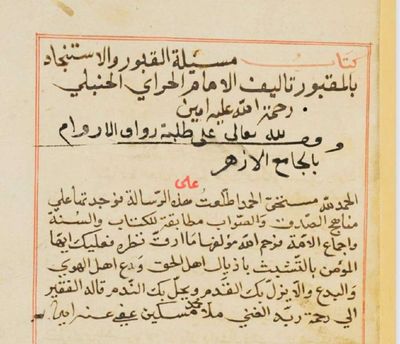 كتاب مسئلة القبور والاستنجاد
بالمقبور تاليف الامام الحراي الحنبلي
رحمة الله عليه امين
وقف لله تعالى على طلبة رواق الاروام
بالجامع الازهر
على
الحمد لله مستحق الحمد طالعت هذه الرسالة فوجدتها على
مناهج الصدق والصواب مطابقة للكتاب والسنة
واجماع الامة فرحم الله مؤلفها ما ادق نظره فعليك ايها
المؤمن بالتشبث باذيال اهل الحق ودع اهل الهوى
والبدع والا يزل بك القدم ويحل بك الندم قاله الفقير
الى رحمة ربه الغني ملا محمد مسكين عفي عنه امين